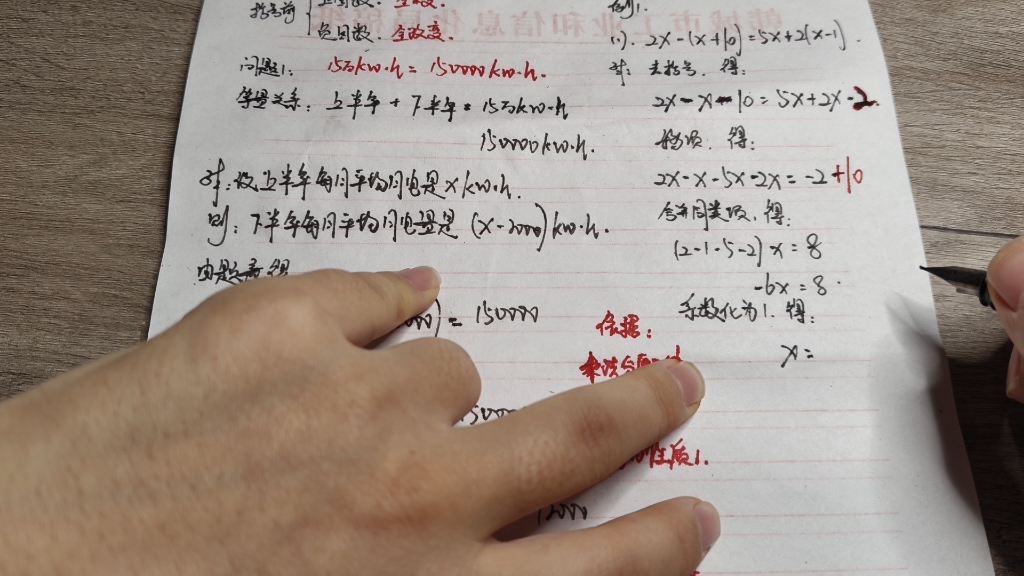 括号前
全改变.
例1.
(1). 2x-(x+10)=5x+2(x-1).
问题1: 15万kw·h = 150000kw·h.
解: 去括号, 得:
等量关系: 上半年 + 下半年 = 15万kw·h
2x-x-10=5x+2x-2.
150000kw·h.
移项, 得:
解: 设上半年每月平均用电是xkw·h.
2x-x-5x-2x=-2+10
则: 下半年每月平均用电量是 (x-2000)kw·h.
合并同类项, 得:
(2-1-5-2)x=8
由题意得
-6x=8.
000)=150000
系数化为1. 得:
依据:
x=
乘法分配
性质1.
12000